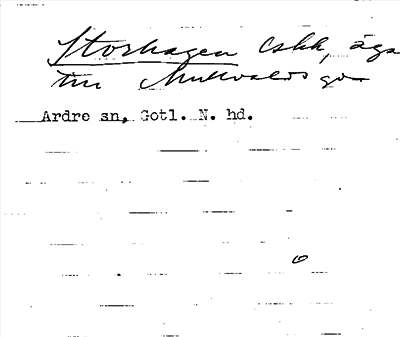 Storhagen Cskk, äga
till Mullvalds gd
Ardre sn, Gotl. N. hd.